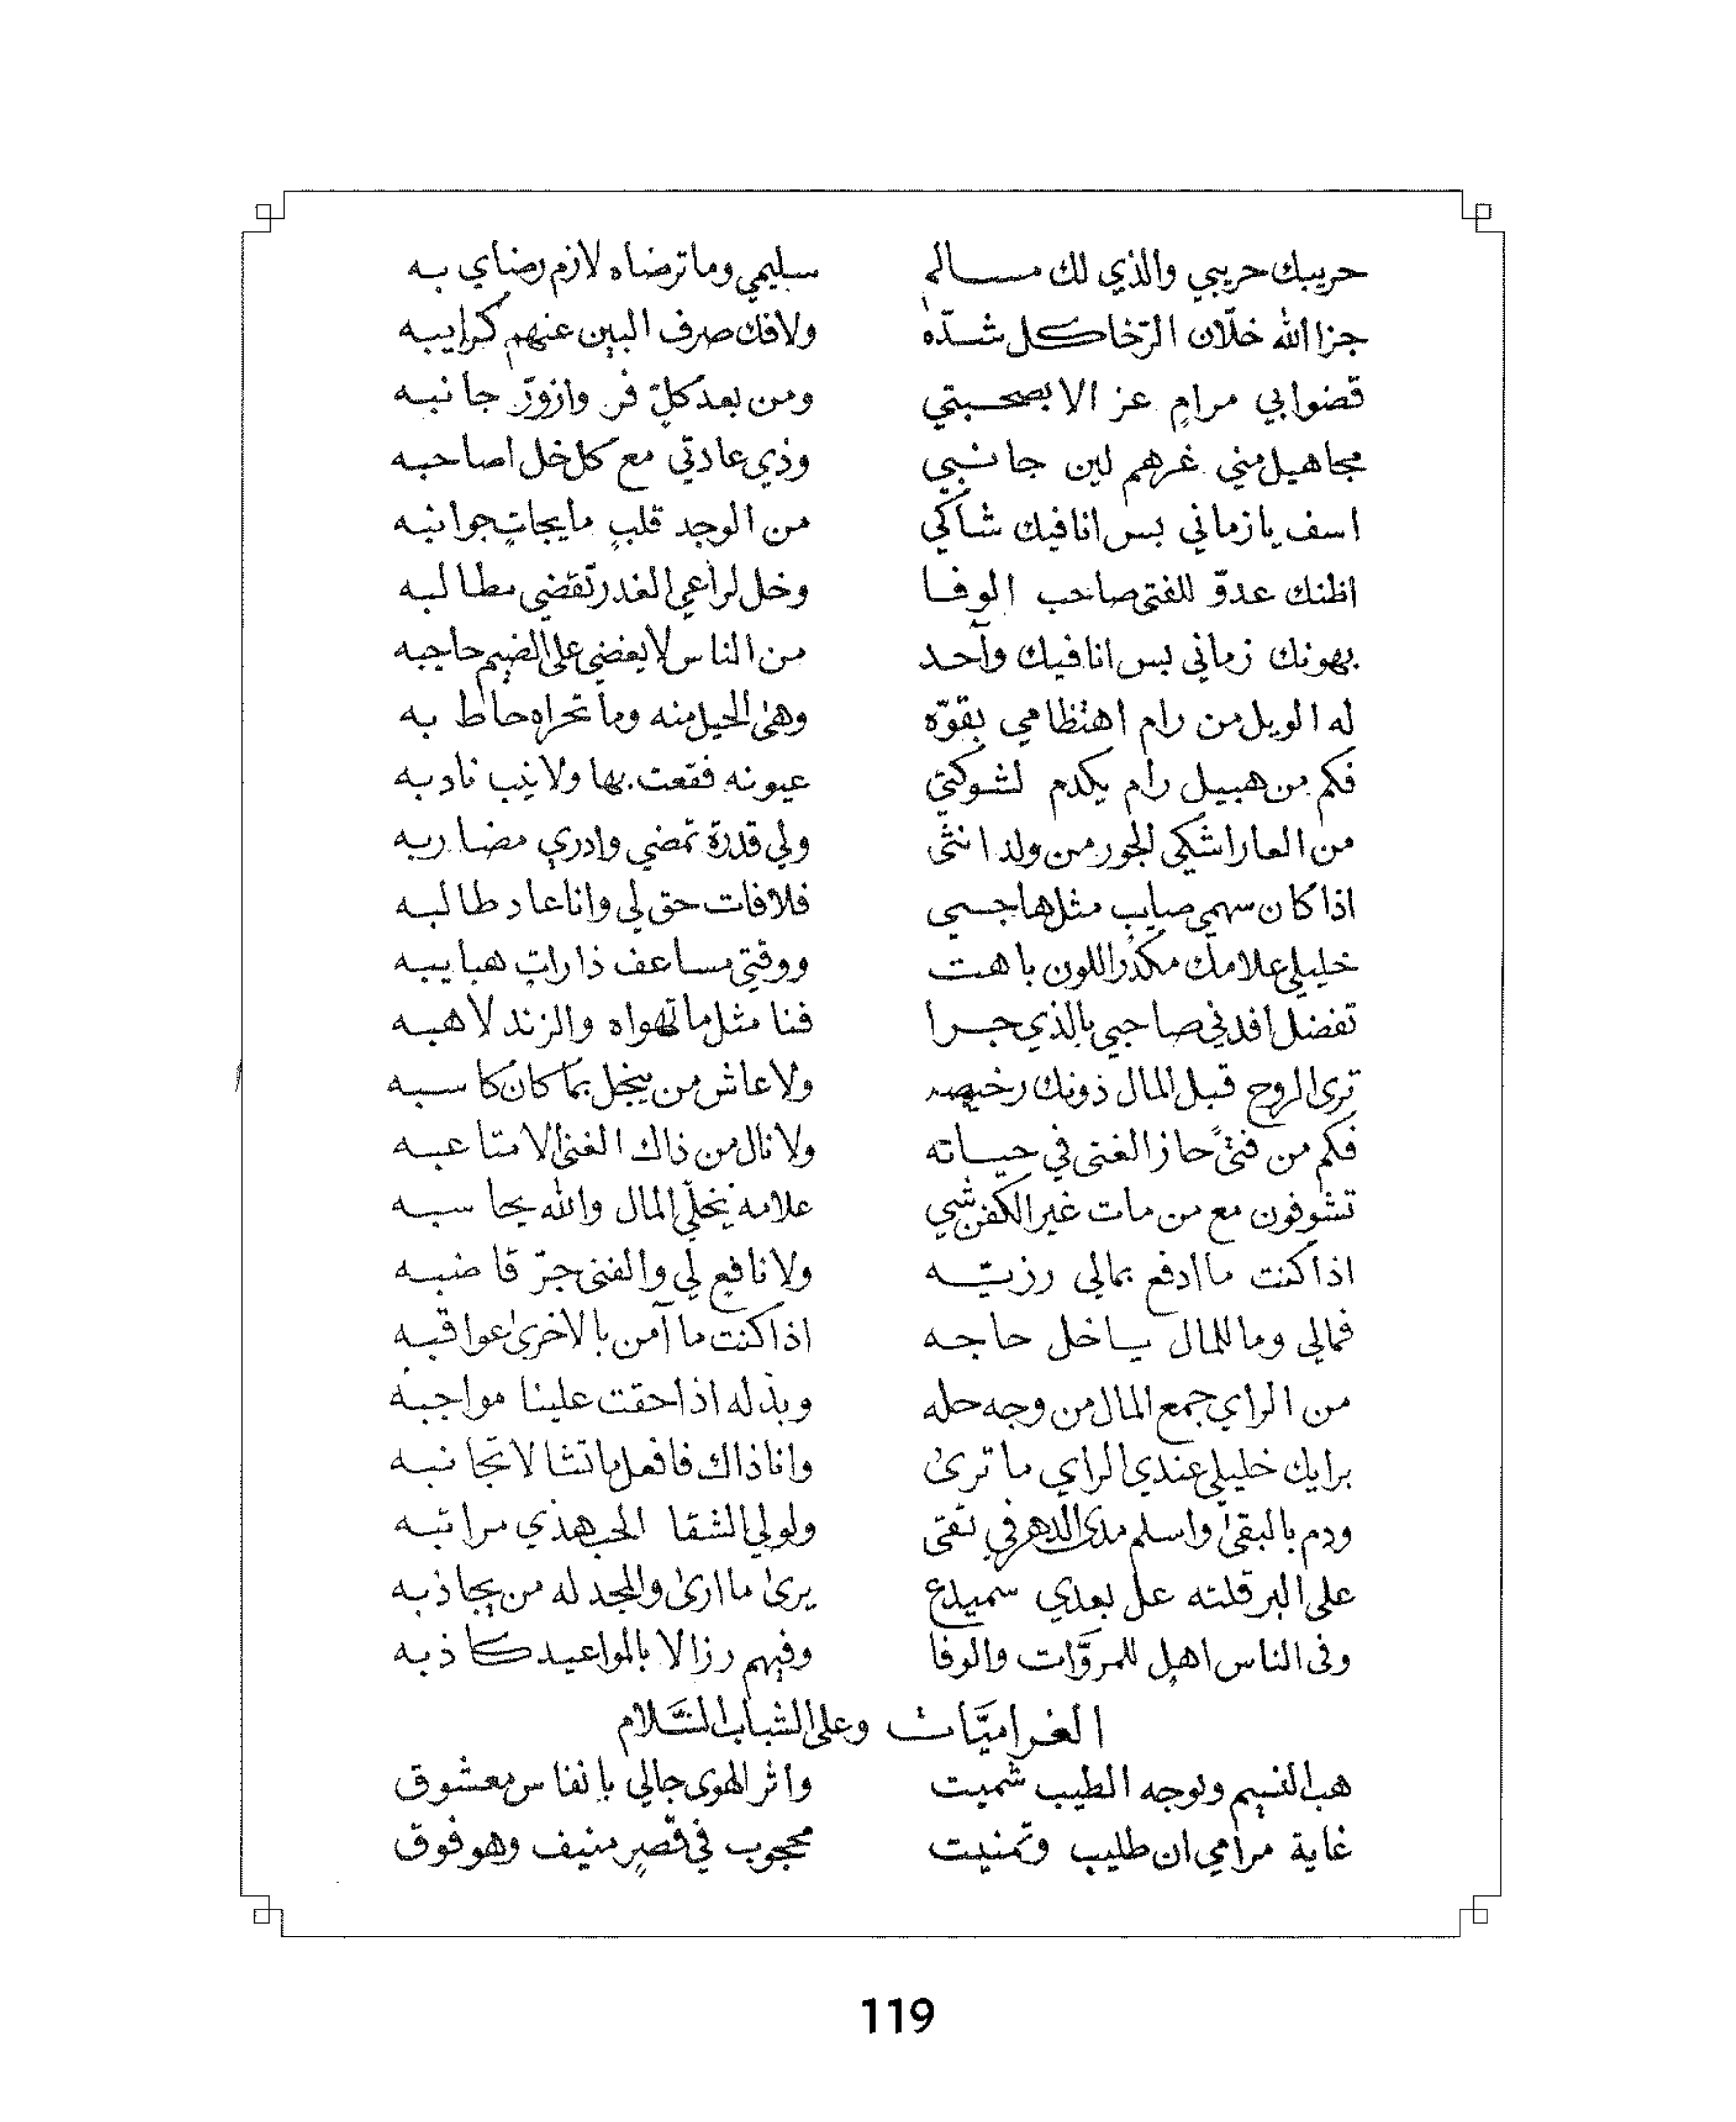 حريبك حريبي والذي لك مسالم سليمي وما ترضاه لازم رضاي به
جزا الله خلّان الرّخا كل شدّه ولا فك صرف البين عنهم كرايبه
قضوا بي مرامٍ عز الا بصحبتي ومن بعد كلٍ فر وازورّ جانبه
مجاهيل مني غرهم لين جانبي وذي عادتي مع كل خل اصاحبه
اسف يا زماني بس انا فيك شاكي من الوجد قلبٍ ما يجات جوانبه
اظنك عدوّ للفتى صاحب الوفا وخل لراعي الغدر تقضي مطالبه
بهونك زماني بس انا فيك واحد من الناس لا يغضي على الضيم حاجبه
له الويل من رام اهتظامي بقوّه وهنى الحيل منه وما تحراه حاط به
فكم من هبيل رام يكدم لشوكتي عيونه فقعت بها ولا ينب نادبه
من العار اشكي الجور من ولد انثى ولي قدرة تمضي وادري مضاربه
اذا كان سهمي صايب مثل هاجسي فلا فات حق لي وانا عاد طالبه
خليلي علامك مكدر اللون باهت ووقتي مساعف ذا رات هبايبه
تفضل افدني صاحبي بالذي جرا فنا مثل ما تهواه والزند لاهبه
ترى الروح قبل المال دونك رخيصه ولا عاش من يبخل بما كان كاسبه
فكم من فتىً حاز الغنى في حياته ولا نال من ذاك الغنى الا متاعبه
تشوفون مع من مات غير الكفن شي علامه يخلّي المال والله يحاسبه
اذا كنت ما ادفع بمالي رزيّه ولا نافع لي والفنى جرّ قاضبه
فمالي وما للمال يا خل حاجه اذا كنت ما آمن بالاخرى عواقبه
من الراي جمع المال من وجه حله وبذله اذا حقت علينا مواجبه
برايك خليلي عندي الراي ما ترى وانا ذاك فافعل ما تشا لا تجانبه
ودم بالبقى واسلم مدى الدهر في نقى ولو لي الشقا الحب هذي مراتبه
على البر قلته عل بعدي سميدع يرى ما ارى والمجد له من يجاذبه
وفى الناس اهل للمروّات والوفا وفيهم رزالا بالمواعيد كاذبه
الغراميَّات وعلى الشباب السَّلام
هب النسيم ونوجه الطيب شميت واثر الهوى جالي بانفاس معشوق
غاية مرامي ان طليب وتمنيت محجوب في قصرٍ منيف وهو فوق
119